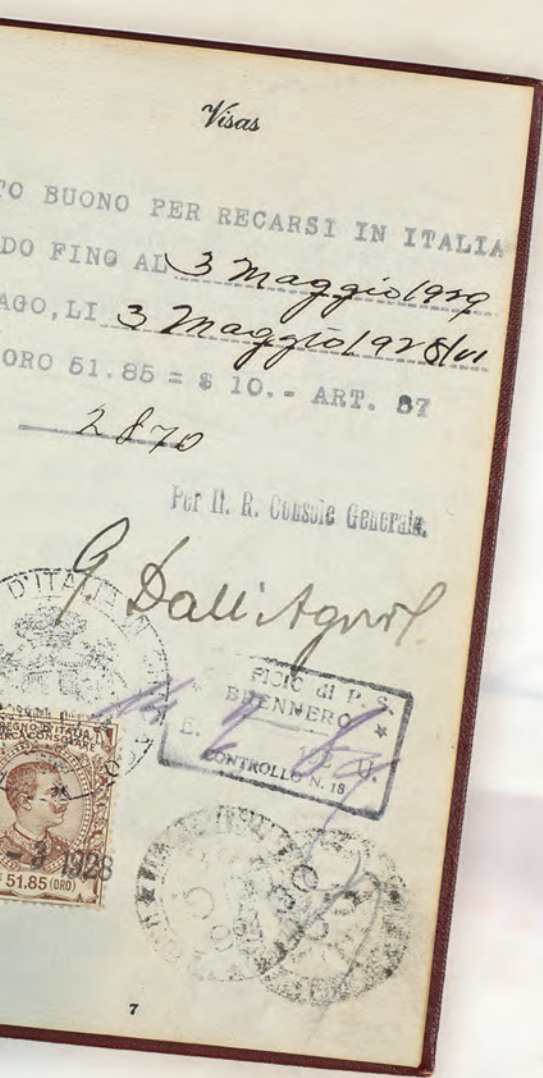 Visas
TO BUONO PER RECARSI IN ITALIA
DO FINO AL 3 Maggio 1929
AGO, LI 3 Maggio 1928/VI
ORO 51.85 = $ 10.- ART. 87
2870
Per Il. R. Console Generale.
G. Dall'Agnol
D'ITALIA
FICIO di P. S.
BRENNERO
E. 192 U.
CONTROLLO N. 18
REGNO D'ITALIA
CONSOLARE
3 1928
51.85 (ORO)
7